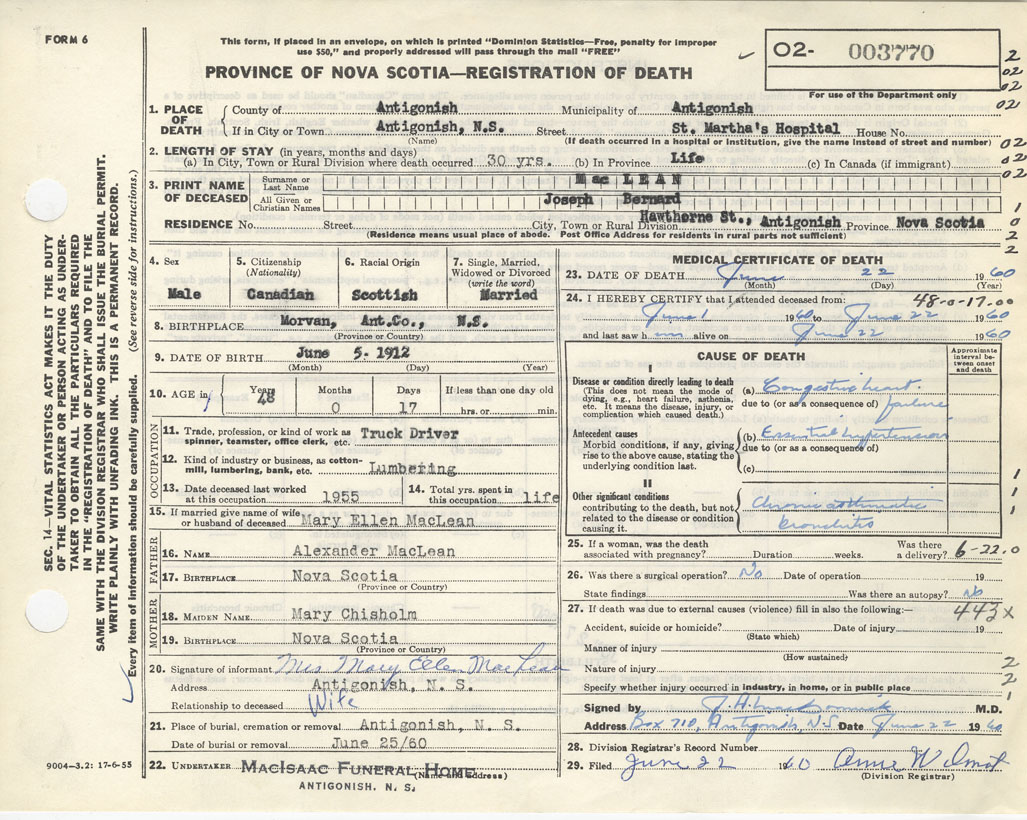 FORM 6
This form, if placed in an envelope, on which is printed "Dominion Statistics—Free, penalty for improper
use $50," and properly addressed will pass through the mail "FREE"
02- 003770
PROVINCE OF NOVA SCOTIA—REGISTRATION OF DEATH
For use of the Department only
2
02
02
02
02
02
02
1
0
2
2
1. PLACE OF DEATH
County of Antigonish Municipality of Antigonish
If in City or Town Antigonish, N.S. Street St. Martha's Hospital House No.
(Name) (If death occurred in a hospital or institution, give the name instead of street and number)
2. LENGTH OF STAY (in years, months and days)
(a) In City, Town or Rural Division where death occurred 30 yrs. (b) In Province Life (c) In Canada (if immigrant)
3. PRINT NAME OF DECEASED
Surname or Last Name Mac LEAN
All Given or Christian Names Joseph Bernard
RESIDENCE No. Street City, Town or Rural Division Hawthorne St., Antigonish Province Nova Scotia
(Residence means usual place of abode. Post Office Address for residents in rural parts not sufficient)
SEC. 14—VITAL STATISTICS ACT MAKES IT THE DUTY
OF THE UNDERTAKER OR PERSON ACTING AS UNDER-
TAKER TO OBTAIN ALL THE PARTICULARS REQUIRED
IN THE "REGISTRATION OF DEATH" AND TO FILE THE
SAME WITH THE DIVISION REGISTRAR WHO SHALL ISSUE THE BURIAL PERMIT.
WRITE PLAINLY WITH UNFADING INK. THIS IS A PERMANENT RECORD.
Every item of information should be carefully supplied. (See reverse side for instructions.)
4. Sex
Male
5. Citizenship
(Nationality)
Canadian
6. Racial Origin
Scottish
7. Single, Married,
Widowed or Divorced
(write the word)
Married
8. BIRTHPLACE Morvan, Ant.Co., N.S.
(Province or Country)
9. DATE OF BIRTH June 5 - 1912
(Month) (Day) (Year)
10. AGE in Years 48 Months 0 Days 17 If less than one day old hrs. or min.
OCCUPATION
11. Trade, profession, or kind of work as
spinner, teamster, office clerk, etc. Truck Driver
12. Kind of industry or business, as cotton-
mill, lumbering, bank, etc. Lumbering
13. Date deceased last worked
at this occupation 1955
14. Total yrs. spent in
this occupation life
15. If married give name of wife
or husband of deceased Mary Ellen MacLean
FATHER
16. NAME Alexander MacLean
17. BIRTHPLACE Nova Scotia
(Province or Country)
MOTHER
18. MAIDEN NAME Mary Chisholm
19. BIRTHPLACE Nova Scotia
(Province or Country)
20. Signature of informant Mrs Mary Ellen MacLean
Address Antigonish, N. S.
Relationship to deceased Wife
21. Place of burial, cremation or removal Antigonish, N. S.
Date of burial or removal June 25/60
22. UNDERTAKER MACISAAC FUNERAL HOME
(Name and address)
ANTIGONISH, N. S.
9004—3.2: 17-6-55
MEDICAL CERTIFICATE OF DEATH
23. DATE OF DEATH June 22 1960
(Month) (Day) (Year)
48-0-17.00
24. I HEREBY CERTIFY that I attended deceased from:
June 1 1960 to June 22 1960
and last saw h im alive on June 22 1960
CAUSE OF DEATH
Approximate
interval be-
tween onset
and death
I
Disease or condition directly leading to death
(This does not mean the mode of
dying, e.g., heart failure, asthenia,
etc. It means the disease, injury, or
complication which caused death.)
(a) Congestive heart
due to (or as a consequence of) failure
Antecedent causes
Morbid conditions, if any, giving
rise to the above cause, stating the
underlying condition last.
(b) Essential hypertension
due to (or as a consequence of)
(c)
II
Other significant conditions
contributing to the death, but not
related to the disease or condition
causing it.
Chronic asthmatic
bronchitis
1
1
1
25. If a woman, was the death
associated with pregnancy? Duration weeks. Was there
a delivery?
6-22.0
26. Was there a surgical operation? No Date of operation 19
State findings Was there an autopsy? No
27. If death was due to external causes (violence) fill in also the following:—
443x
Accident, suicide or homicide? Date of injury 19
(State which)
Manner of injury
(How sustained)
Nature of injury
Specify whether injury occurred in industry, in home, or in public place
2
2
1
Signed by M.D.
Address Box 710, Antigonish, N.S Date June 22 1960
28. Division Registrar's Record Number
29. Filed June 22 1960 Anne Wilmot
(Division Registrar)